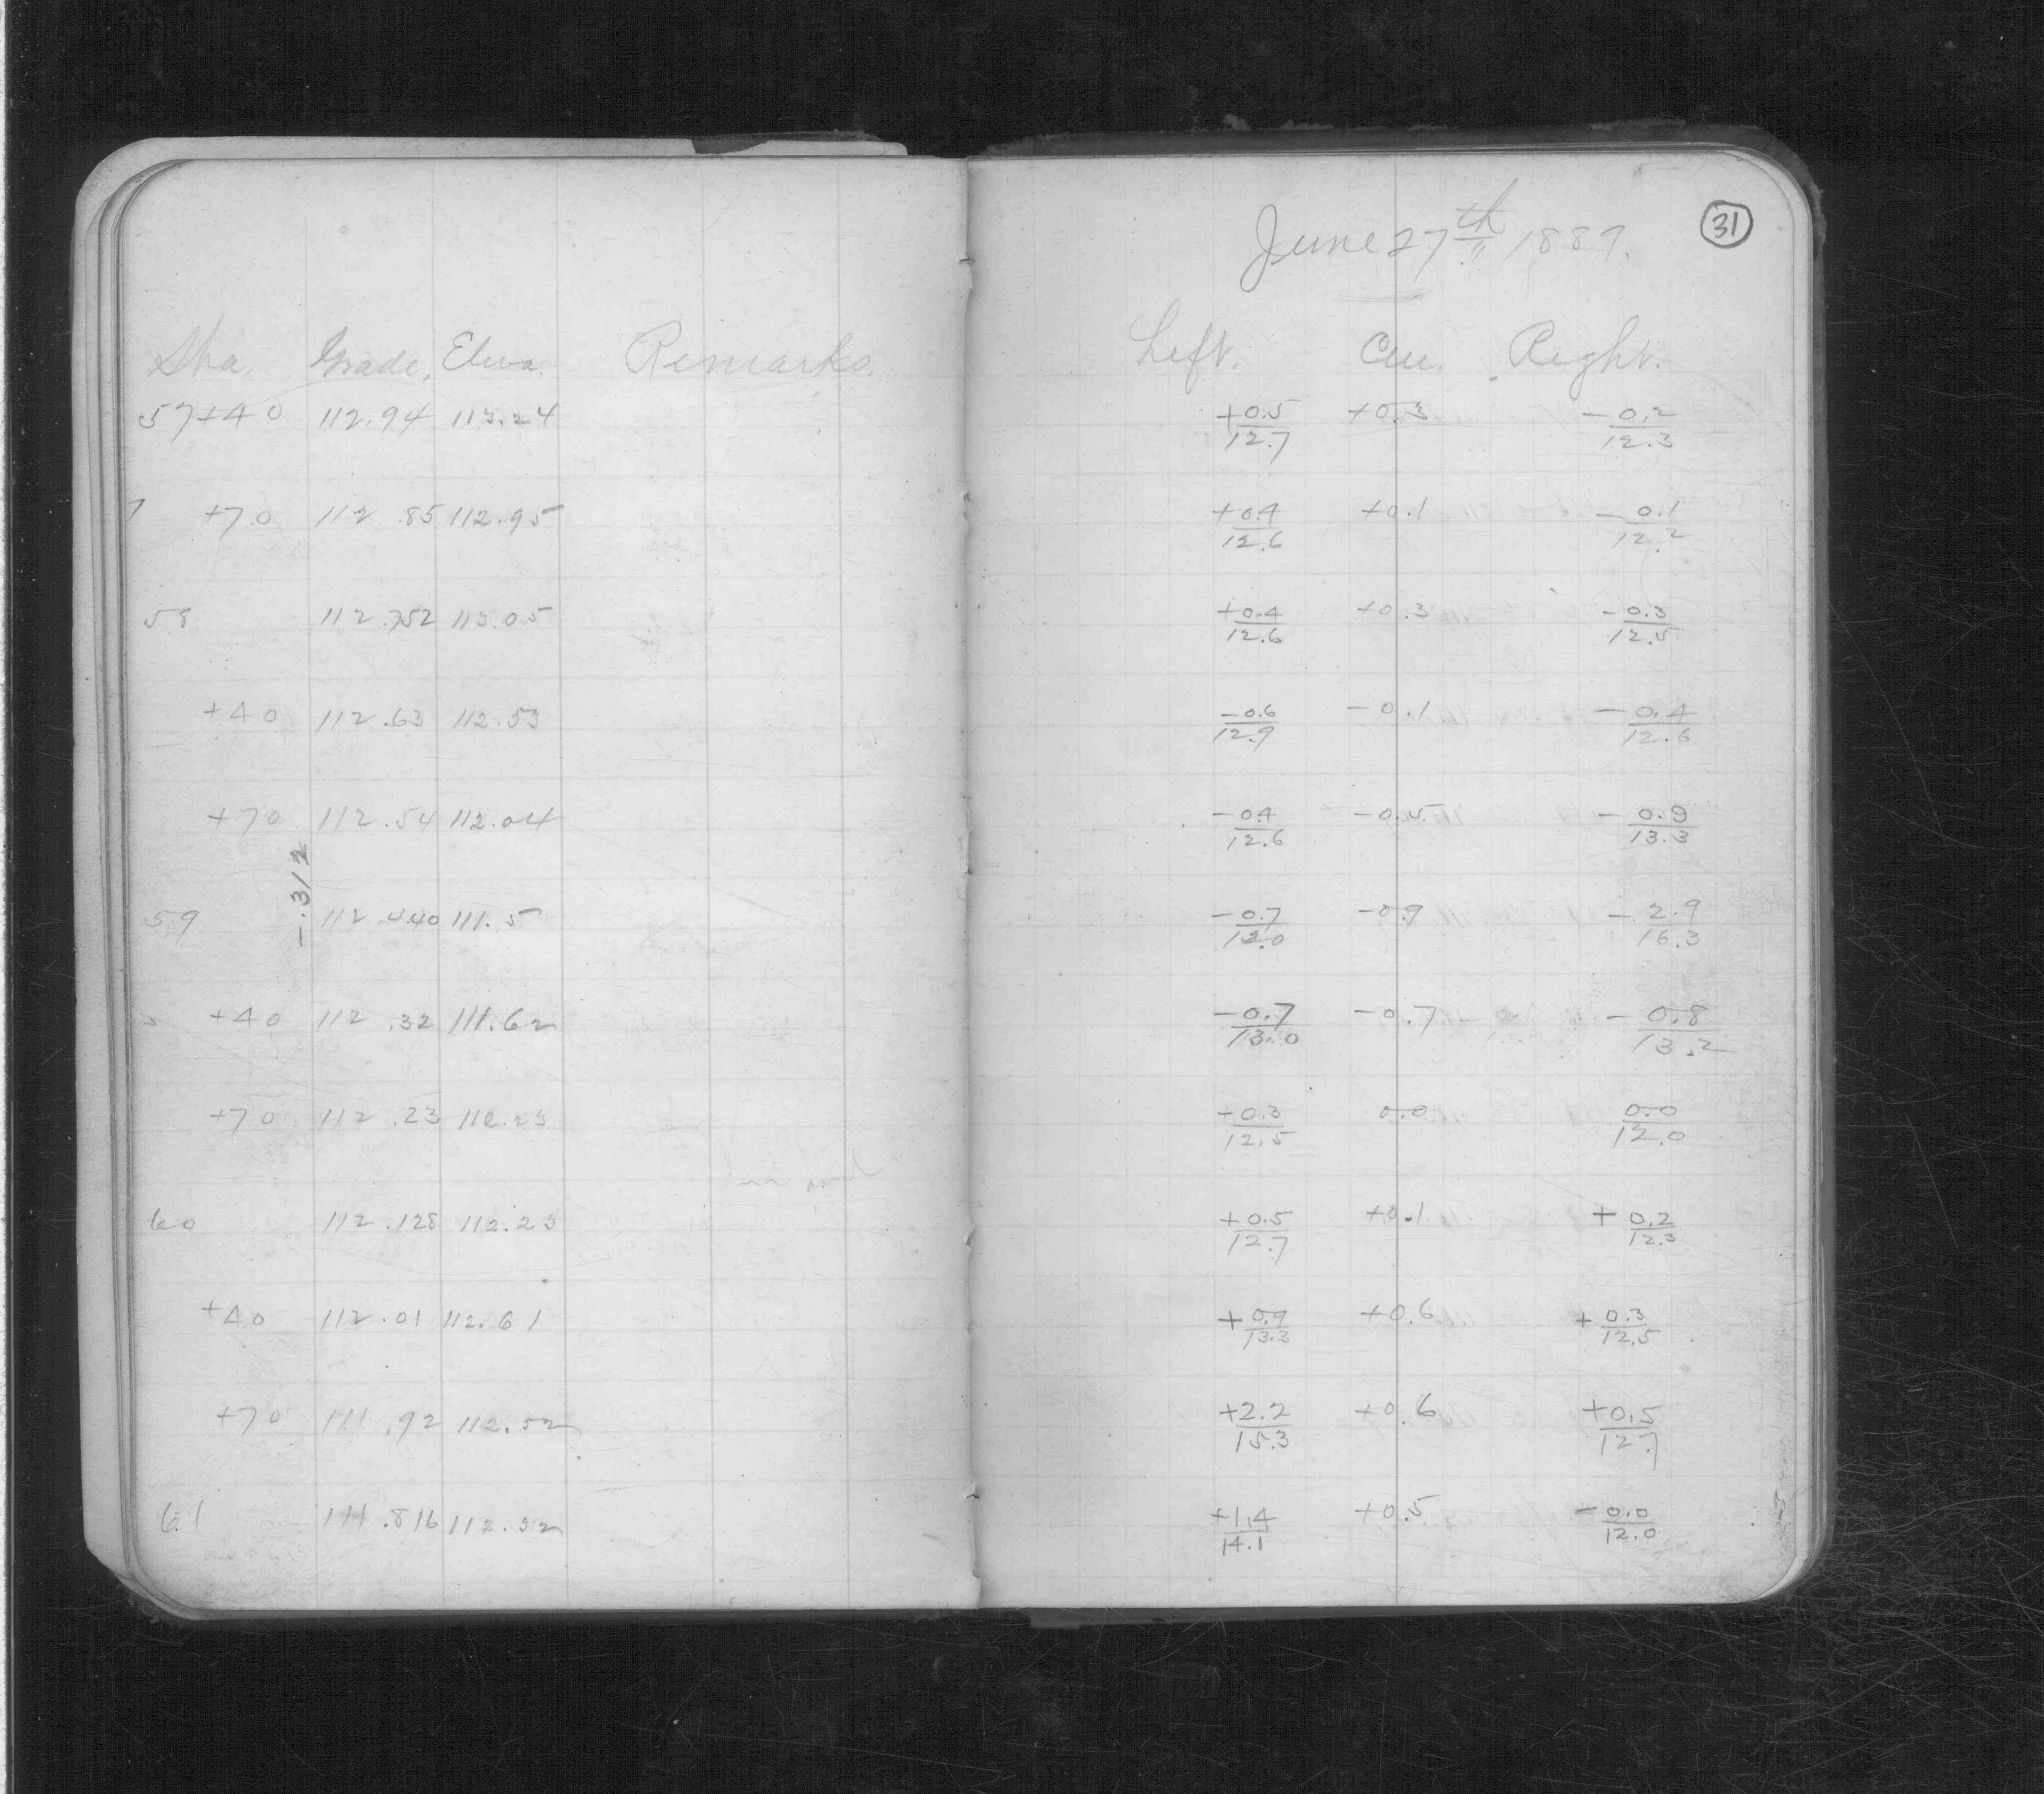 31
June 27th 1889.
Sta. Grade. Eleva. Remarks. Left. Cen. Right.
57+40 112.94 113.24 +0.5/12.7 +0.3 -0.2/12.3
+70 112.85 112.95 +0.4/12.6 +0.1 -0.1/12.2
58 112.752 113.05 +0.4/12.6 +0.3 -0.3/12.5
+40 112.63 112.53 -0.6/12.9 -0.1 -0.4/12.6
+70 112.54 112.04 -0.4/12.6 -0.5 -0.9/13.3
-.312
59 112.440 111.5 -0.7/13.0 -0.9 -2.9/16.3
+40 112.32 111.62 -0.7/13.0 -0.7 -0.8/13.2
+70 112.23 112.23 -0.3/12.5 0.0 0.0/12.0
60 112.128 112.23 +0.5/12.7 +0.1 +0.2/12.3
+40 112.01 112.61 +0.9/13.3 +0.6 +0.3/12.5
+70 111.92 112.52 +2.2/15.3 +0.6 +0.5/12.7
61 111.816 112.32 +1.4/14.1 +0.5 -0.0/12.0